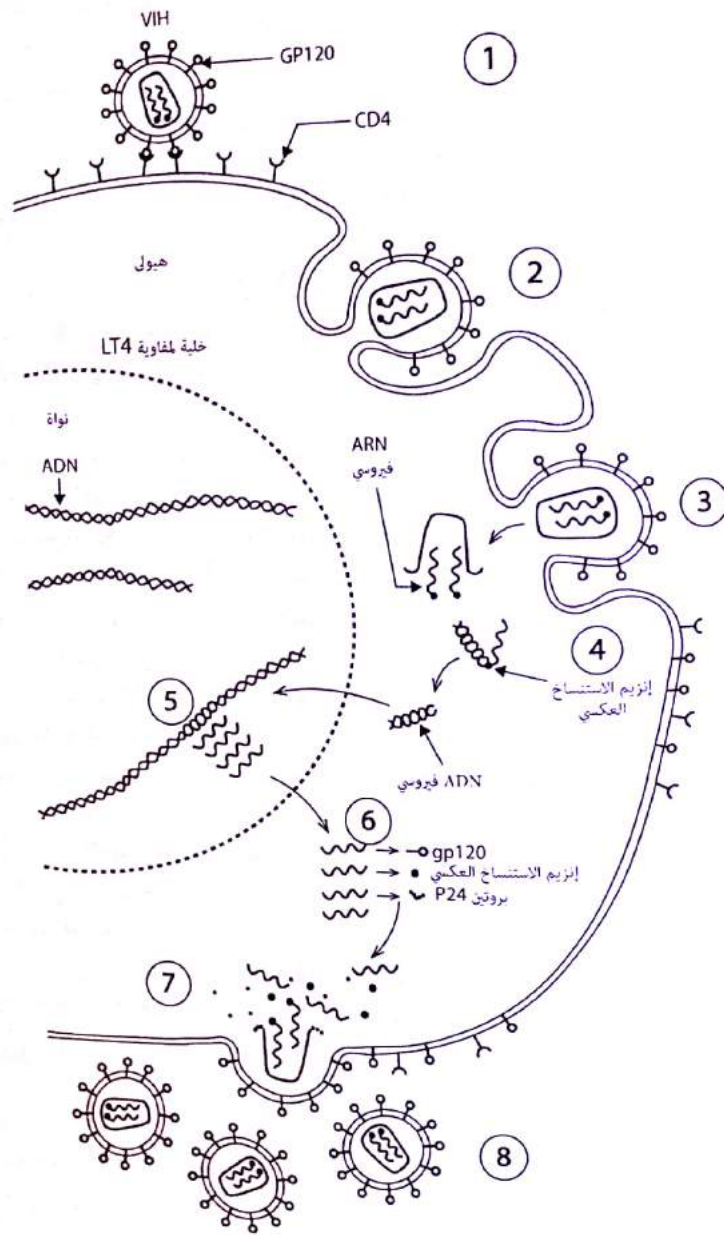 VIH
GP120
1
CD4
هيولى
2
خلية لمفاوية LT4
نواة
ADN
ARN
فيروسي
3
4
إنزيم الاستنساخ
العكسي
5
ADN فيروسي
6
gp120
إنزيم الاستنساخ العكسي
بروتين P24
7
8